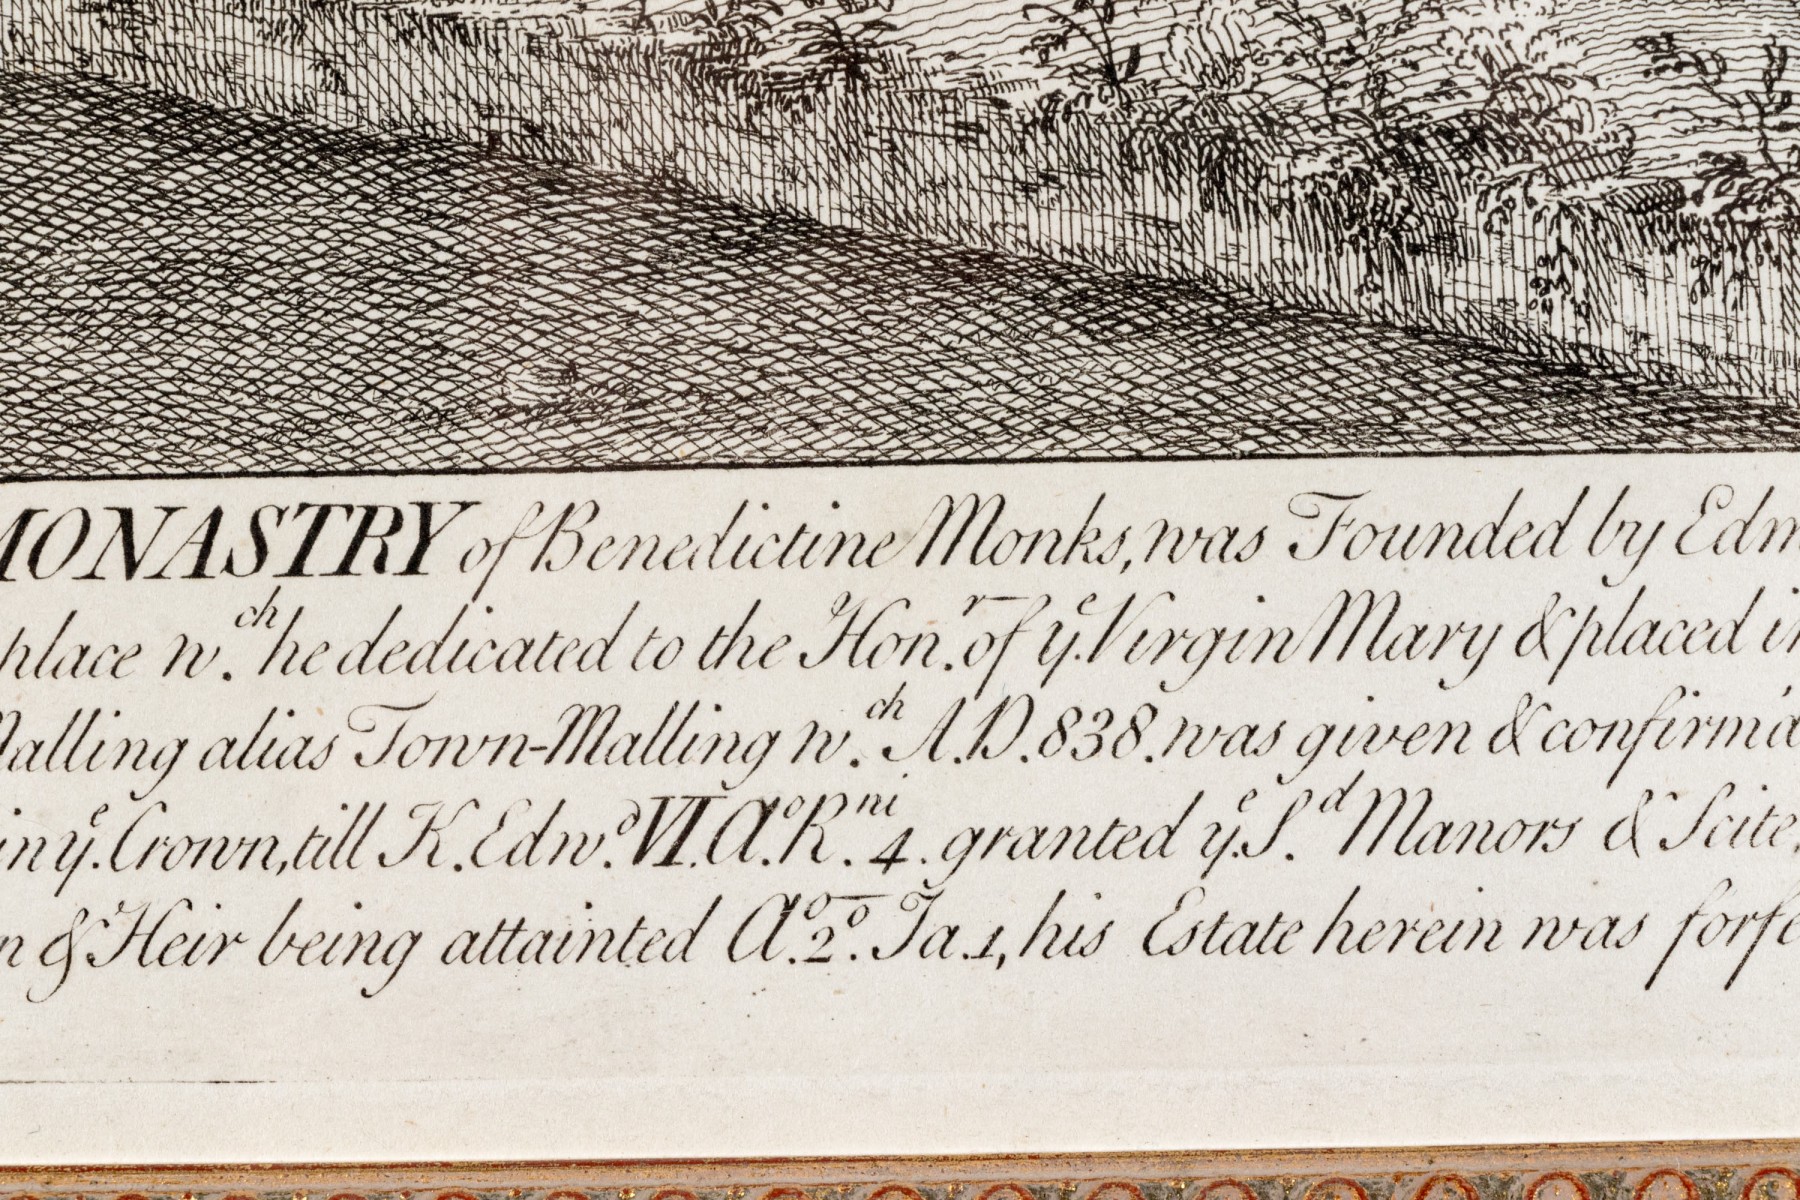 MONASTRY of Benedictine Monks, was Founded by Edm
place w.ch he dedicated to the Hon.r of ye. Virgin Mary & placed in
Malling alias Town-Malling w.ch A.D. 838. was given & confirm'd
in ye. Crown, till K. Edw.d VI. Ao. Rni. 4. granted ye. Sd. Manors & Scite,
n & Heir being attainted Ao. 2o. Ja. 1, his Estate herein was forfe